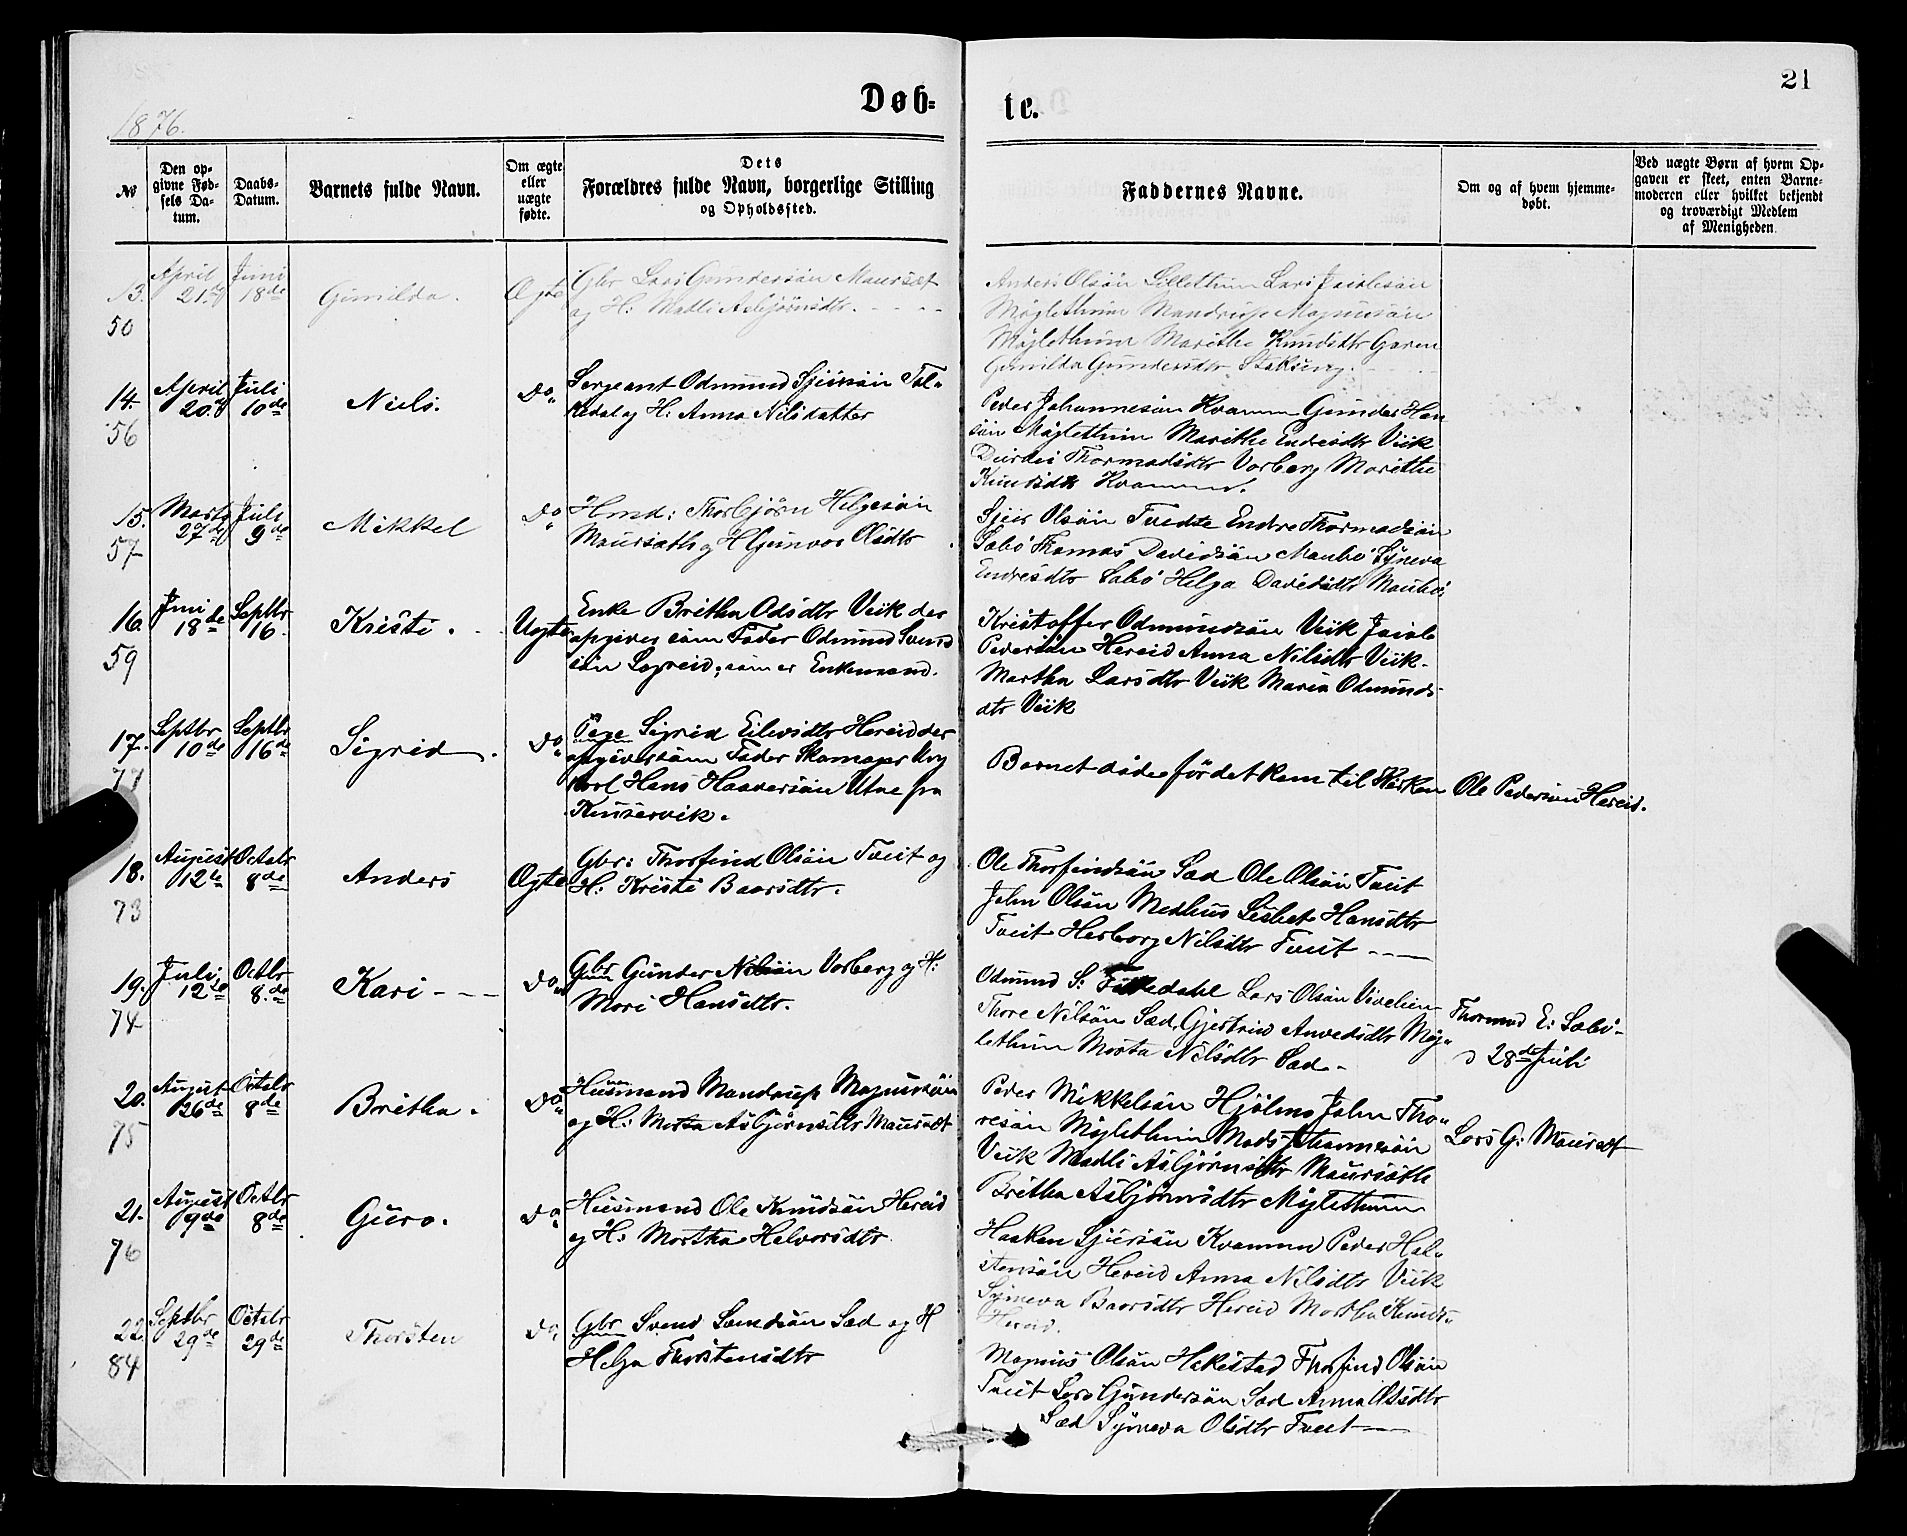 1876.
Døb-
te.
21
№
Den op-
givne Fød-
sels Da-
tum.
Daabs-
Datum.
Barnets fulde Navn.
Om ægte
eller
uægte
fødte.
Dets
Forældres fulde Navn, borgerlige Stilling
og Opholdssted.
Faddernes Navne.
Om og af hvem hjemme-
døbt.
Ved uægte Børn af hvem Op-
gaven er skeet, enten Barne-
moderen eller hvilket bekjendt
og troværdigt Medlem
af Menigheden.
13.
50
April
21de
Juni
18de
Gunilda.
Ægte
Gbr Lars Gundersøn Maursæt
og H: Madli Asbjørnsdtr.
Anders Olsøn Lillethun Lars
Møglethun Mandrup Magnusøn
Møglethun Marithe Knudsdtr Garen
Gunilda Gundersdtr
14.
56
April
20de
Juli
10de
Niels.
Do.
Sergeant Odmund Sjursøn Tal-
kedal og H: Anna Nilsdatter
Peder Johannesøn Kvamm Gunder Han
søn Møglethun Marithe Endresdtr Viik
Thormodsdtr Vorberg Marithe
Knudsdtr Kvamm.
15.
57
Marts
27de
Juli
9de
Mikkel
Do
Hmd: Thorbjørn Helgesøn
Maursæth og H Gunvor Olsdtr
Sjur Olsøn Tvedte Endre Thormodsøn
Sæbø Thomas Davidsøn Maubø Syneva
Endresdtr Sæbø Helga Davidsdtr Maubø
16.
59
Juni
18de
Septbr
16.
Kristi.
Uægte
Enke Britha Odsdtr Viik der
opgiver som Fader Odmund Svend
søn Legreid, som er Enkemand.
Kristoffer Odmundsøn Viik Jacob
Pedersøn Hereid Anna Nilsdtr Viik
Martha Larsdtr Viik Maria Odmunds-
dtr Viik
17.
77
Septbr
10de
Septbr
16de
Sigrid
Do
Pige Sigrid Eilevsdtr Hereid der
opgiver som Fader Skomager Ung
karl Hans Haaversøn Utne fra
Kinservik.
Barnet døde før det kom til Kirken
Ole Pedersøn Hereid.
18.
73
August
12te
Octobr
8de
Anders
Ægte
Gbr: Thorfind Olsøn Tveit og
H: Kristi Baarsdtr.
Ole Thorfindsøn Sæd Ole Olsøn Tveit
John Olsøn Medhus Lisbet Hansdtr
Tveit Herborg Nilsdtr Tveit
19.
74
Juli
12te
Octbr
8de
Kari
Do
Gbr Gunder Nilsøn Vorberg og H:
Mari Hansdtr.
Odmund S: Talkedahl Lars Olsøn Vivelien
Thore Nilsøn Sæd, Gjertrud Anvedsdtr Møg-
lethun Marta Nilsdtr Sæd
Thormod E: Sæbø
28de Juli
20.
75
August
26de
Octobr
8de
Britha.
Do
Huusmand Mandrup Magnusøn
og H: Marta Asbjørnsdtr Maursæt
Peder Mikkelsøn Hjølmo John Tho-
resøn Møglethun Mads Johannesøn
Viik Madli Asbjørnsdtr Maursæth
Britha Asbjørnsdtr Møglethun
Lars G: Maursæt
21.
76
August
9de
Octbr
8de
Guro.
Do
Huusmand Ole Knudsøn Hereid
og H: Martha Halvorsdtr.
Haaken Sjursøn Kvammen Peder Hal-
stensøn Hereid Anna Nilsdtr Viik
Syneva Baarsdtr Hereid Martha Knuds-
Hereid.
22.
84
Septbr
29de
Octobr
29de
Thorsten
Do
Gbr Svend Samsøn Sæd og H
Helga Thorstensdtr
Magnus Olsøn Hakestad Thorfind Olsøn
Tveit Lars Gundersøn Sæd Anna Olsdtr
Sæd Syneva Olsdtr Tveit